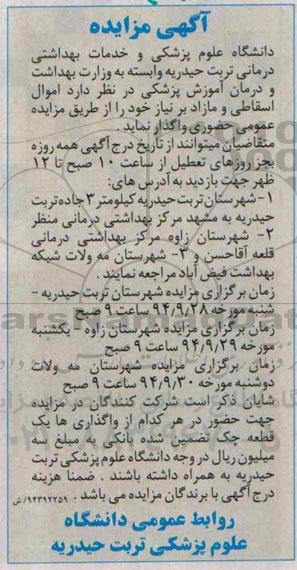 آگهی مزایده
دانشگاه علوم پزشکی و خدمات بهداشتی
درمانی تربت حیدریه وابسته به وزارت بهداشت
و درمان آموزش پزشکی در نظر دارد اموال
اسقاطی و مازاد بر نیاز خود را از طریق مزایده
عمومی حضوری واگذار نماید .
متقاضیان میتوانند از تاریخ درج آگهی همه روزه
بجز روزهای تعطیل از ساعت ۱۰ صبح تا ۱۲
ظهر جهت بازدید به آدرس های:
۱- شهرستان تربت حیدریه کیلومتر ۳ جاده تربت
حیدریه به مشهد مرکز بهداشتی درمانی منظر
۲- شهرستان زاوه مرکز بهداشتی درمانی
قلعه آقاحسن و ۳- شهرستان مه ولات شبکه
بهداشت فیض آباد مراجعه نمایند .
زمان برگزاری مزایده شهرستان تربت حیدریه -
شنبه مورخه ۹۴/۹/۲۸ ساعت ۹ صبح
زمان برگزاری مزایده شهرستان زاوه - یکشنبه
مورخه ۹۴/۹/۲۹ ساعت ۹ صبح
زمان برگزاری مزایده شهرستان مه ولات
دوشنبه مورخه ۹۴/۹/۳۰ ساعت ۹ صبح
شایان ذکر است شرکت کنندگان در مزایده
جهت حضور در هر کدام از واگذاری ها یک
قطعه چک تضمین شده بانکی به مبلغ سه
میلیون ریال در وجه دانشگاه علوم پزشکی تربت
حیدریه به همراه داشته باشند . ضمنا هزینه
درج آگهی با برندگان مزایده می باشد . ۹۴۳۹۲۲۵۹/ش
روابط عمومی دانشگاه
علوم پزشکی تربت حیدریه